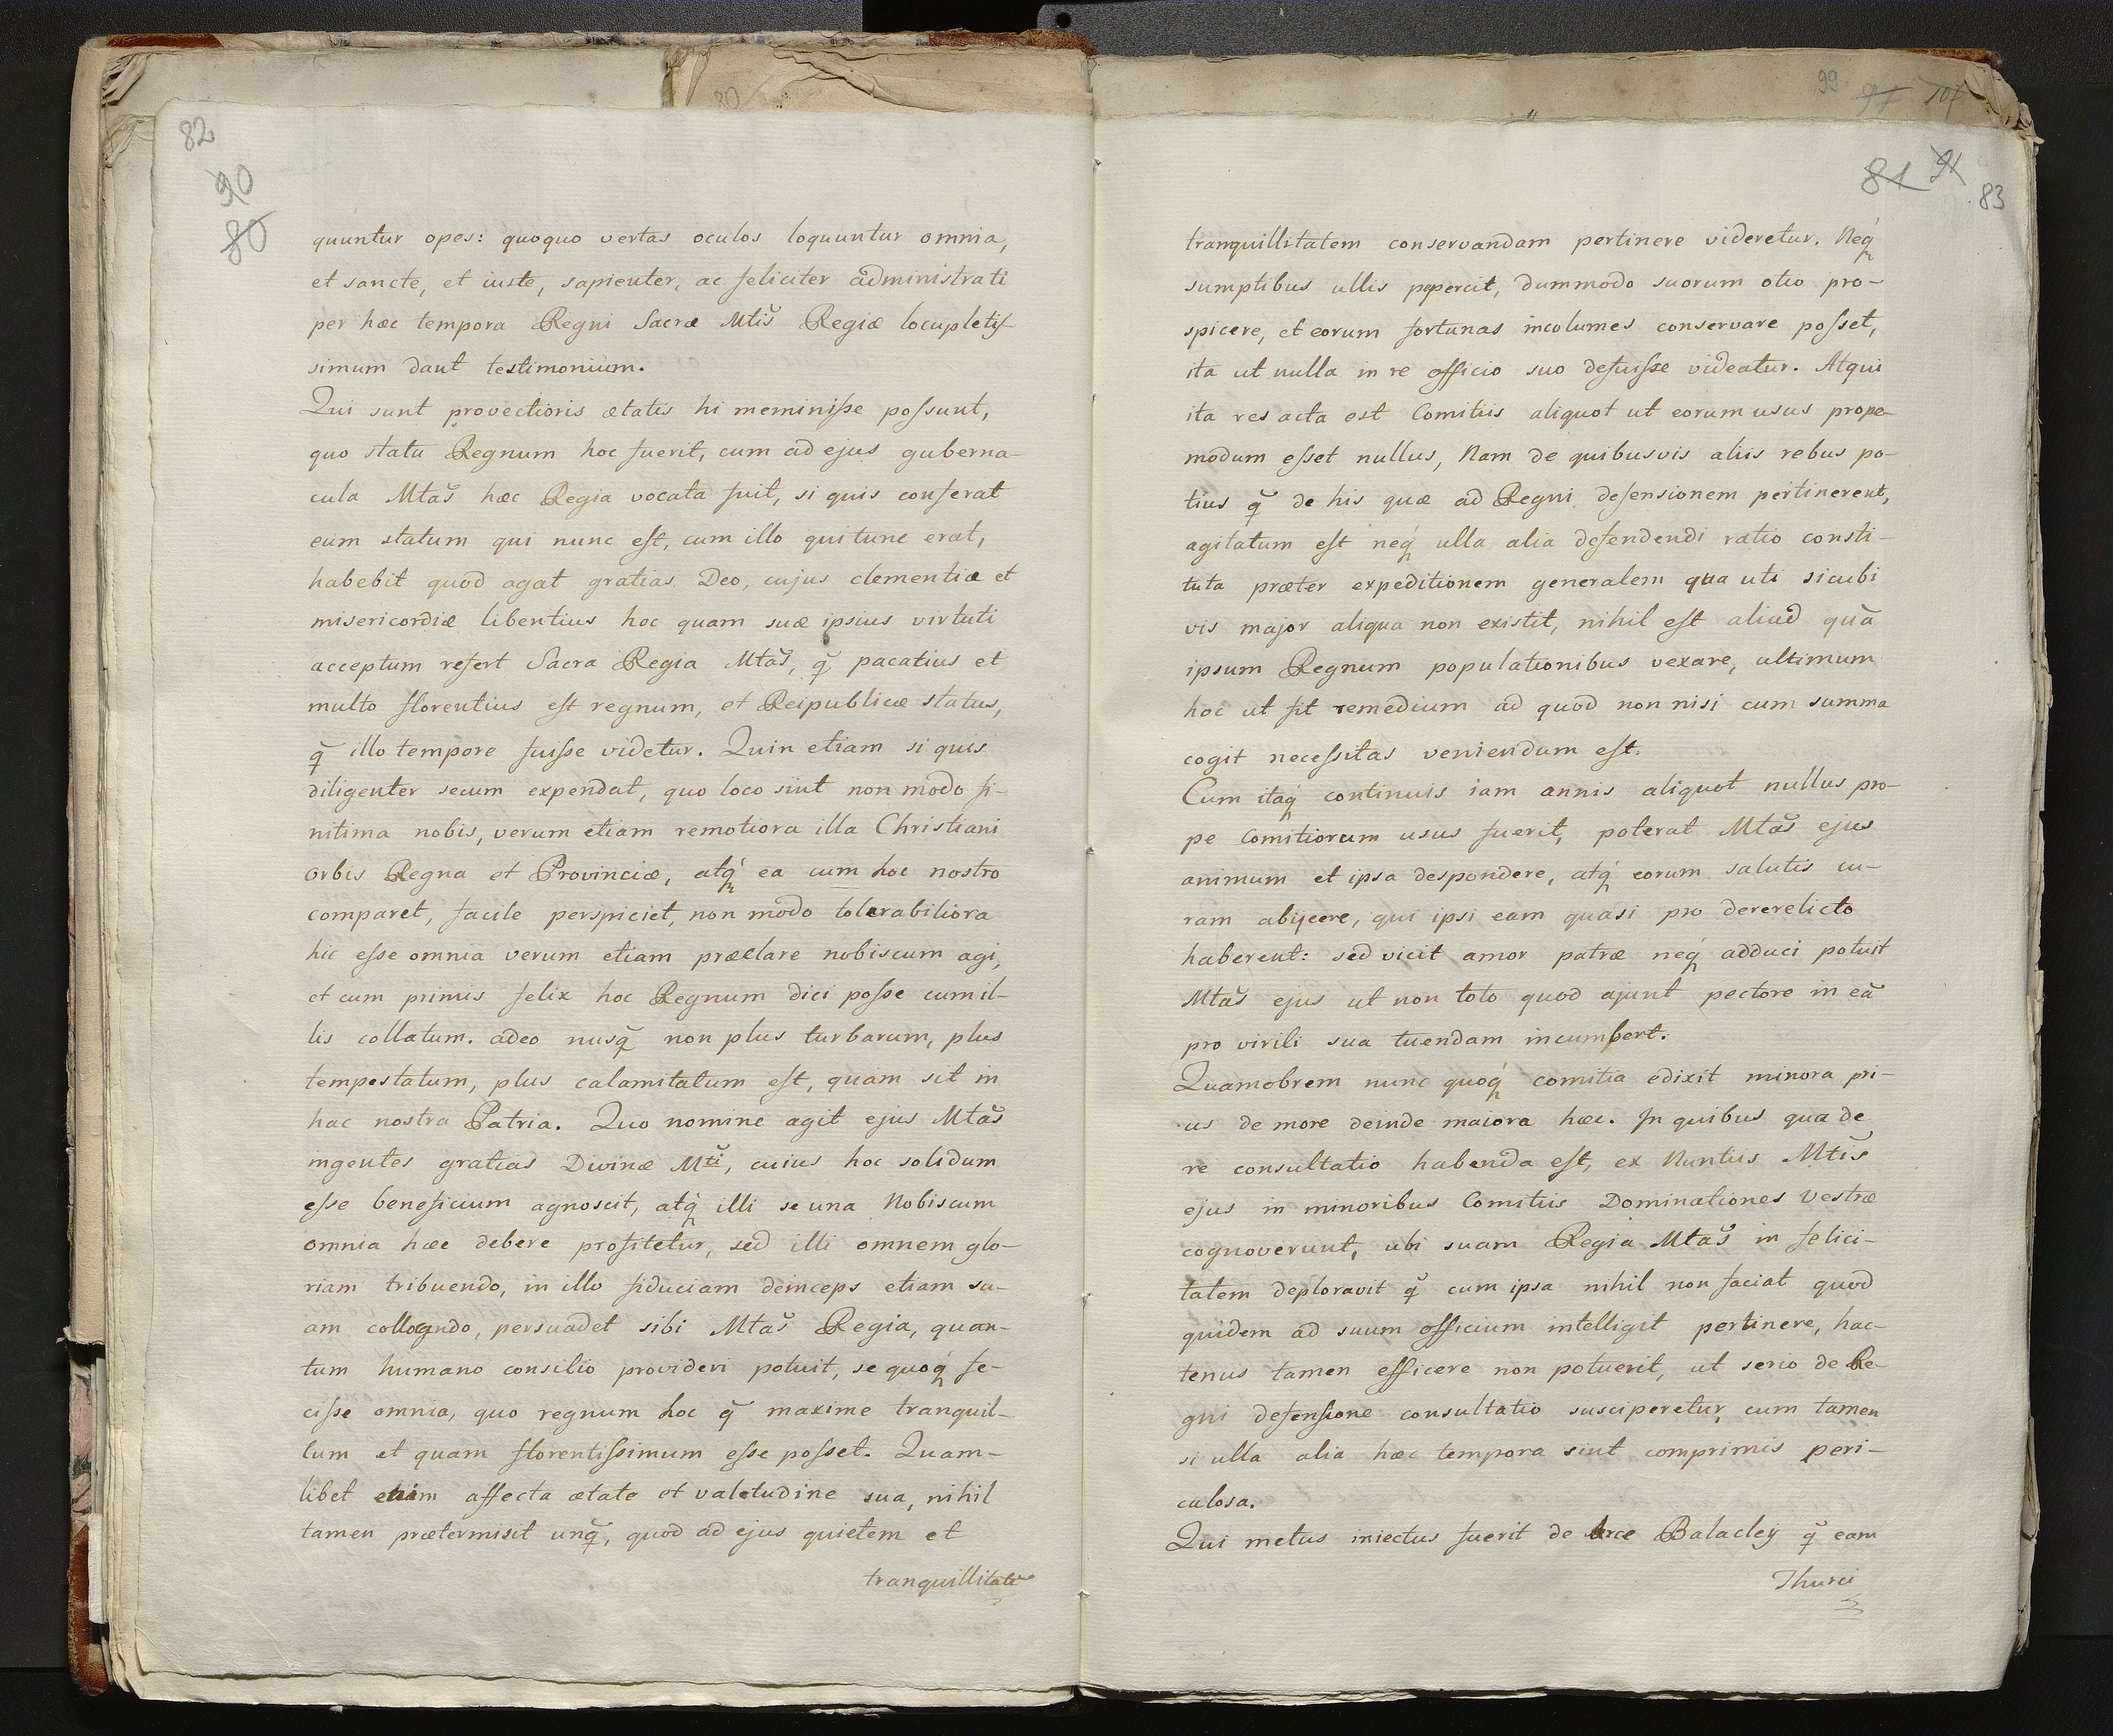 82
90
80
quuntur opes: quoquo vertas oculos loquuntur omnia,
et sancte, et iuste, sapienter, ac feliciter administrati
per hæc tempora Regni Sacræ Mtis̃ Regiæ locupletiſ-
simum dant testimonium.
Qui sunt provectioris ætatis hi meminiſse poſsunt,
quo statu Regnum hoc fuerit, cum ad ejus guberna-
cula Mtas̃ hæc Regia vocata fuit, si quis conferat
eum statum qui nunc eſt, cum illo qui tunc erat,
habebit quod agat gratias Deo, cujus clementiæ et
misericordiæ libentius hoc quam suæ ipsius virtuti
acceptum refert Sacra Regia Mtas̃, q̃ pacatius et
multo florentius eſt regnum, et Reipublicæ status,
q̃ illo tempore fuiſse videtur. Quin etiam si quis
diligenter secum expendat, quo loco sint non modo fi-
nitima nobis, verum etiam remotiora illa Christiani
orbis Regna et Provinciæ, atq́ ea cum hoc nostro
comparet, facile perspiciet, non modo tolerabiliora
hic eſse omnia verum etiam præclare nobiscum agi,
et cum primis felix hoc Regnum dici poſse cum il-
lis collatum. adeo nusq̃ non plus turbarum, plus
tempestatum, plus calamitatum eſt, quam sit in
hac nostra Patria. Quo nomine agit ejus Mtas̃
ingentes gratias Divinæ Mti̾, cuius hoc solidum
eſse beneficium agnoscit, atq́ illi se una Nobiscum
omnia hæc debere profitetur, sed illi omnem glo-
riam tribuendo, in illo fiduciam deinceps etiam su-
am collocando, persuadet sibi Mtas̃ Regia, quan-
tum humano consilio provideri potuit, se quoq́ fe-
ciſse omnia, quo regnum hoc q̃ maxime tranquil-
lum et quam florentiſsimum eſse poſset. Quam-
libet etiam affecta ætate et valetudine sua, nihil
tamen prætermisit unq̃, quod ad ejus quietem et
tranquillitatẽ
80
99 97 107
81 91 83
tranquillitatem conservandam pertinere videretur. Neq́
sumptibus ullis pepercit, dummodo suorum otio pro-
spicere, et eorum fortunas incolumes conservare poſset,
ita ut nulla in re officio suo defuiſse videatur. Atqui
ita res acta est Comitiis aliquot ut eorum usus prope-
modum eſset nullus, Nam de quibusvis aliis rebus po-
tius q̃ de his quæ ad Regni defensionem pertinerent,
agitatum eſt neq́ ulla alia defendendi ratio consti-
tuta præter expeditionem generalem qua uti sicubi
vis major aliqua non existit, nihil eſt aliud quã
ipsum Regnum populationibus vexare, ultimum
hoc ut ſit remedium ad quod non nisi cum summa
cogit neceſsitas veniendum eſt.
Cum itaq́ continuis iam annis aliquot nullus pro-
pe Comitiorum usus fuerit, poterat Mtas̃ ejus
animum et ipsa despondere, atq́ eorum salutis cu-
ram abijcere, qui ipsi eam quasi pro dererelicto
haberent: sed vicit amor patræ neq́ adduci potuit
Mtas̃ ejus ut non toto quod ajunt pectore in eã
pro virili sua tuendam incumbert.
Quamobrem nunc quoq́ comitia edixit minora pri-
us de more deinde maiora hæc. In quibus qua de
re consultatio habenda eſt, ex Nuntiis Mtis̃
ejus in minoribus Comitiis Dominationes Vestræ
cognoverunt, ubi suam Regia Mtas̃ in felici-
tatem deploravit q̃ cum ipsa nihil non faciat quod
quidem ad suum officium intelligit pertinere, hac-
tenus tamen efficere non potuerit, ut serio de Re-
gni defenſione consultatio susciperetur, cum tamen
si ulla alia hæc tempora sint comprimis peri-
culosa.
Qui metus iniectus fuerit de Arce Balacleÿ q̃ eam
Thurci